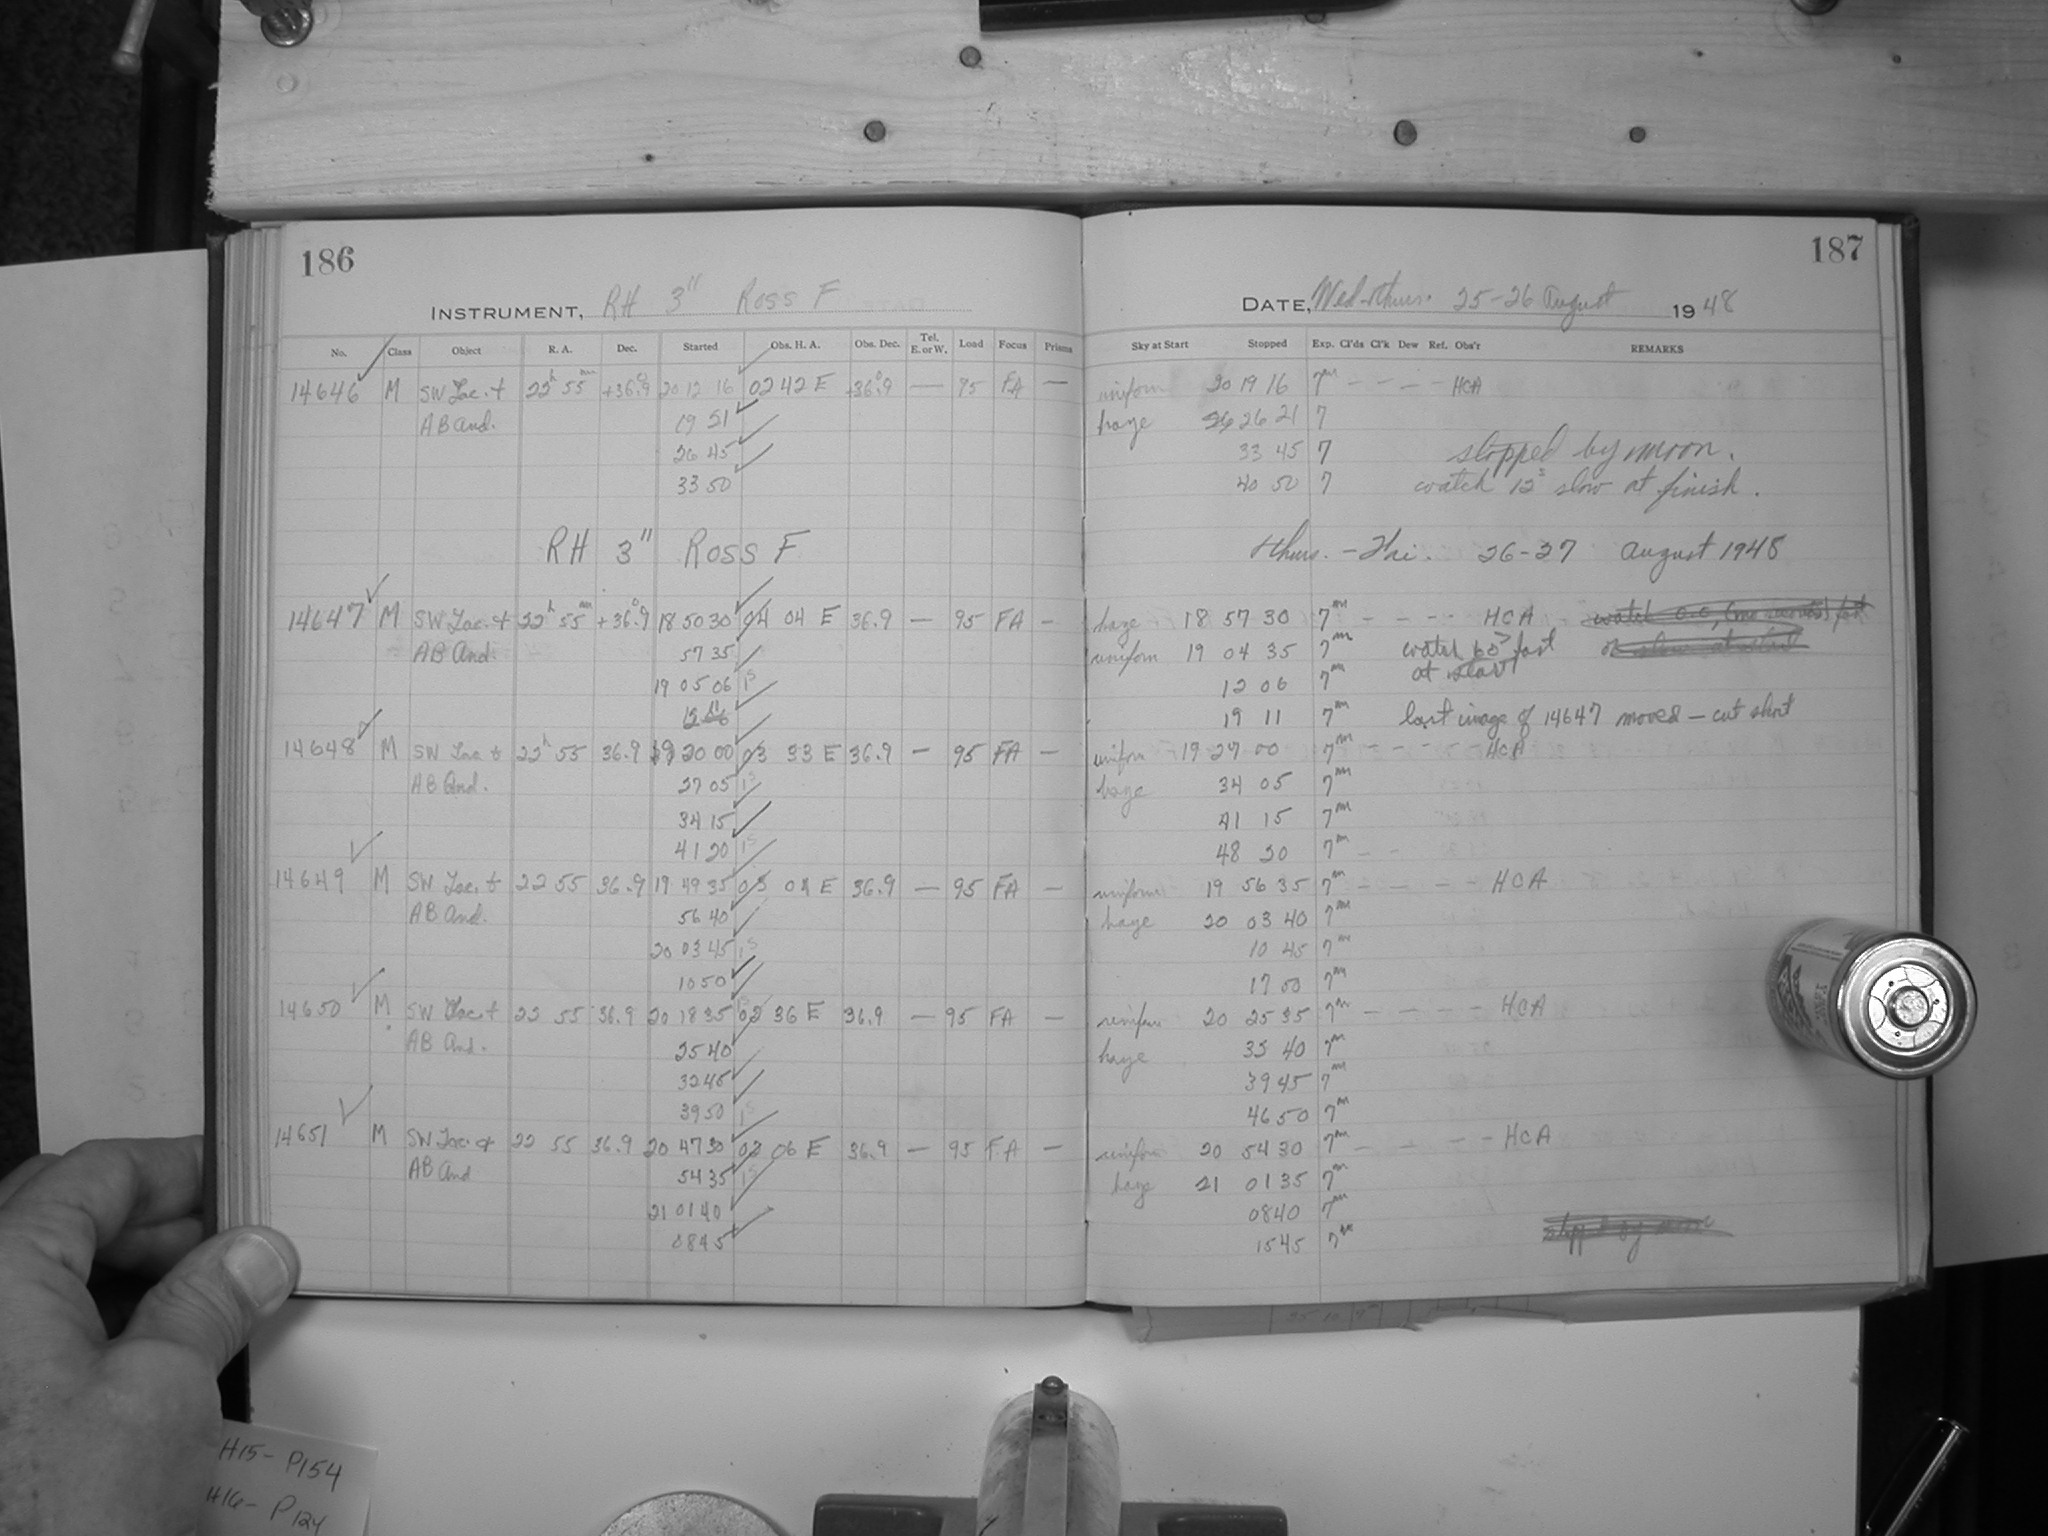 186
187
INSTRUMENT, RH 3" Ross F
DATE, Wed-Thurs. 25-26 August 1948
No. Class Object R. A. Dec. Started Obs. H. A. Obs. Dec. Tel. E. or W. Load Focus Prisms Sky at Start Stopped Exp. Cl'ds Cl'k Dew Ref. Obs'r REMARKS
14646 M SW Lac. + 22h 55m +36.°9 20 12 16 02 42 E +36.°9 — 95 FA — uniform 20 19 16 7m — — — — HCA
AB And. 19 21 haze 26 21 7
26 45 33 45 7 stopped by moon.
33 50 40 50 7 watch 12s slow at finish.
RH 3" Ross F Thurs. - Fri. 26-27 August 1948
14647 M SW Lac. + 22h 55m +36.°9 18 50 30 04 04 E 36.9 — 95 FA — haze 18 57 30 7m - - - - HCA
AB And. 57 35 uniform 19 04 35 7m watch 60s fast
19 05 06 1s 12 06 7m at start
12 11 19 11 7m last image of 14647 moved — cut short
14648 M SW Lac + 22h 55 36.9 19 20 00 03 33 E 36.9 — 95 FA — uniform 19 27 00 7m - - - - HCA
AB And. 27 05 1s haze 34 05 7m
34 15 41 15 7m
41 20 1s 48 20 7m
14649 M SW Lac. + 22 55 36.9 19 49 35 03 04 E 36.9 — 95 FA — uniform 19 56 35 7m - - - - HCA
AB And. 56 40 haze 20 03 40 7m
20 03 45 1s 10 45 7m
10 50 17 00 7m
14650 M SW Lac + 22 55 36.9 20 18 35 1s 02 36 E 36.9 — 95 FA — uniform 20 25 35 7m - - - - HCA
AB And. 25 40 haze 33 40 7m
32 45 39 45 7m
39 50 1s 46 50 7m
14651 M SW Lac. + 22 55 36.9 20 47 30 02 06 E 36.9 — 95 FA — uniform 20 54 30 7m - - - - HCA
AB And 54 35 1s haze 21 01 35 7m
21 01 40 08 40 7m
08 45 15 45 7m
H15- P154
H16- P124